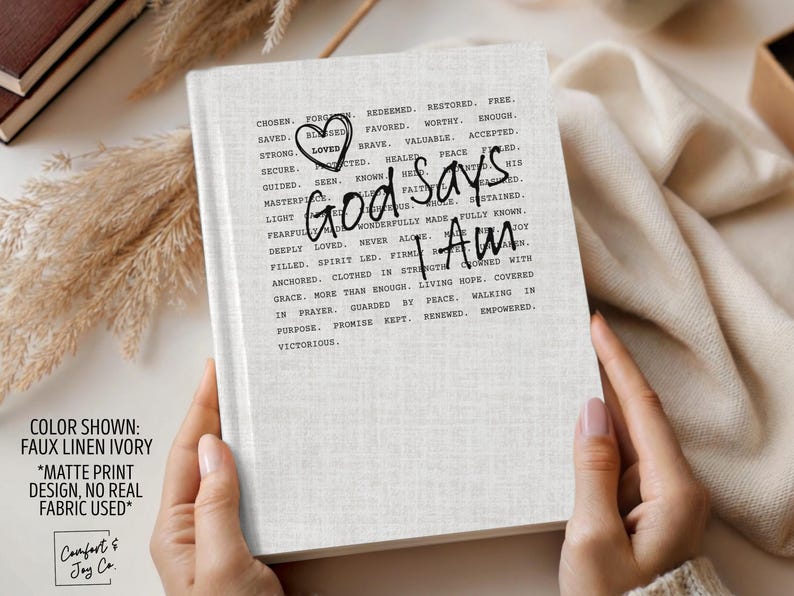 CHOSEN. FORGIVEN. REDEEMED. RESTORED. FREE.
SAVED. BLESSED. FAVORED. WORTHY. ENOUGH.
STRONG. LOVED. BRAVE. VALUABLE. ACCEPTED.
SECURE. PROTECTED. HEALED. PEACE FILLED.
GUIDED. SEEN. KNOWN. HELD. HIS
MASTERPIECE. CALLED. FAITHFUL. TREASURED.
LIGHT RIGHTEOUS. WHOLE. SUSTAINED.
FEARFULLY MADE. WONDERFULLY MADE. FULLY KNOWN.
DEEPLY LOVED. NEVER ALONE. MADE NEW. JOY
FILLED. SPIRIT LED. FIRMLY ROOTED. UNSHAKEN.
ANCHORED. CLOTHED IN STRENGTH. CROWNED WITH
GRACE. MORE THAN ENOUGH. LIVING HOPE. COVERED
IN PRAYER. GUARDED BY PEACE. WALKING IN
PURPOSE. PROMISE KEPT. RENEWED. EMPOWERED.
VICTORIOUS.
God Says
I Am
COLOR SHOWN:
FAUX LINEN IVORY
*MATTE PRINT
DESIGN, NO REAL
FABRIC USED*
Comfort &
Joy Co.